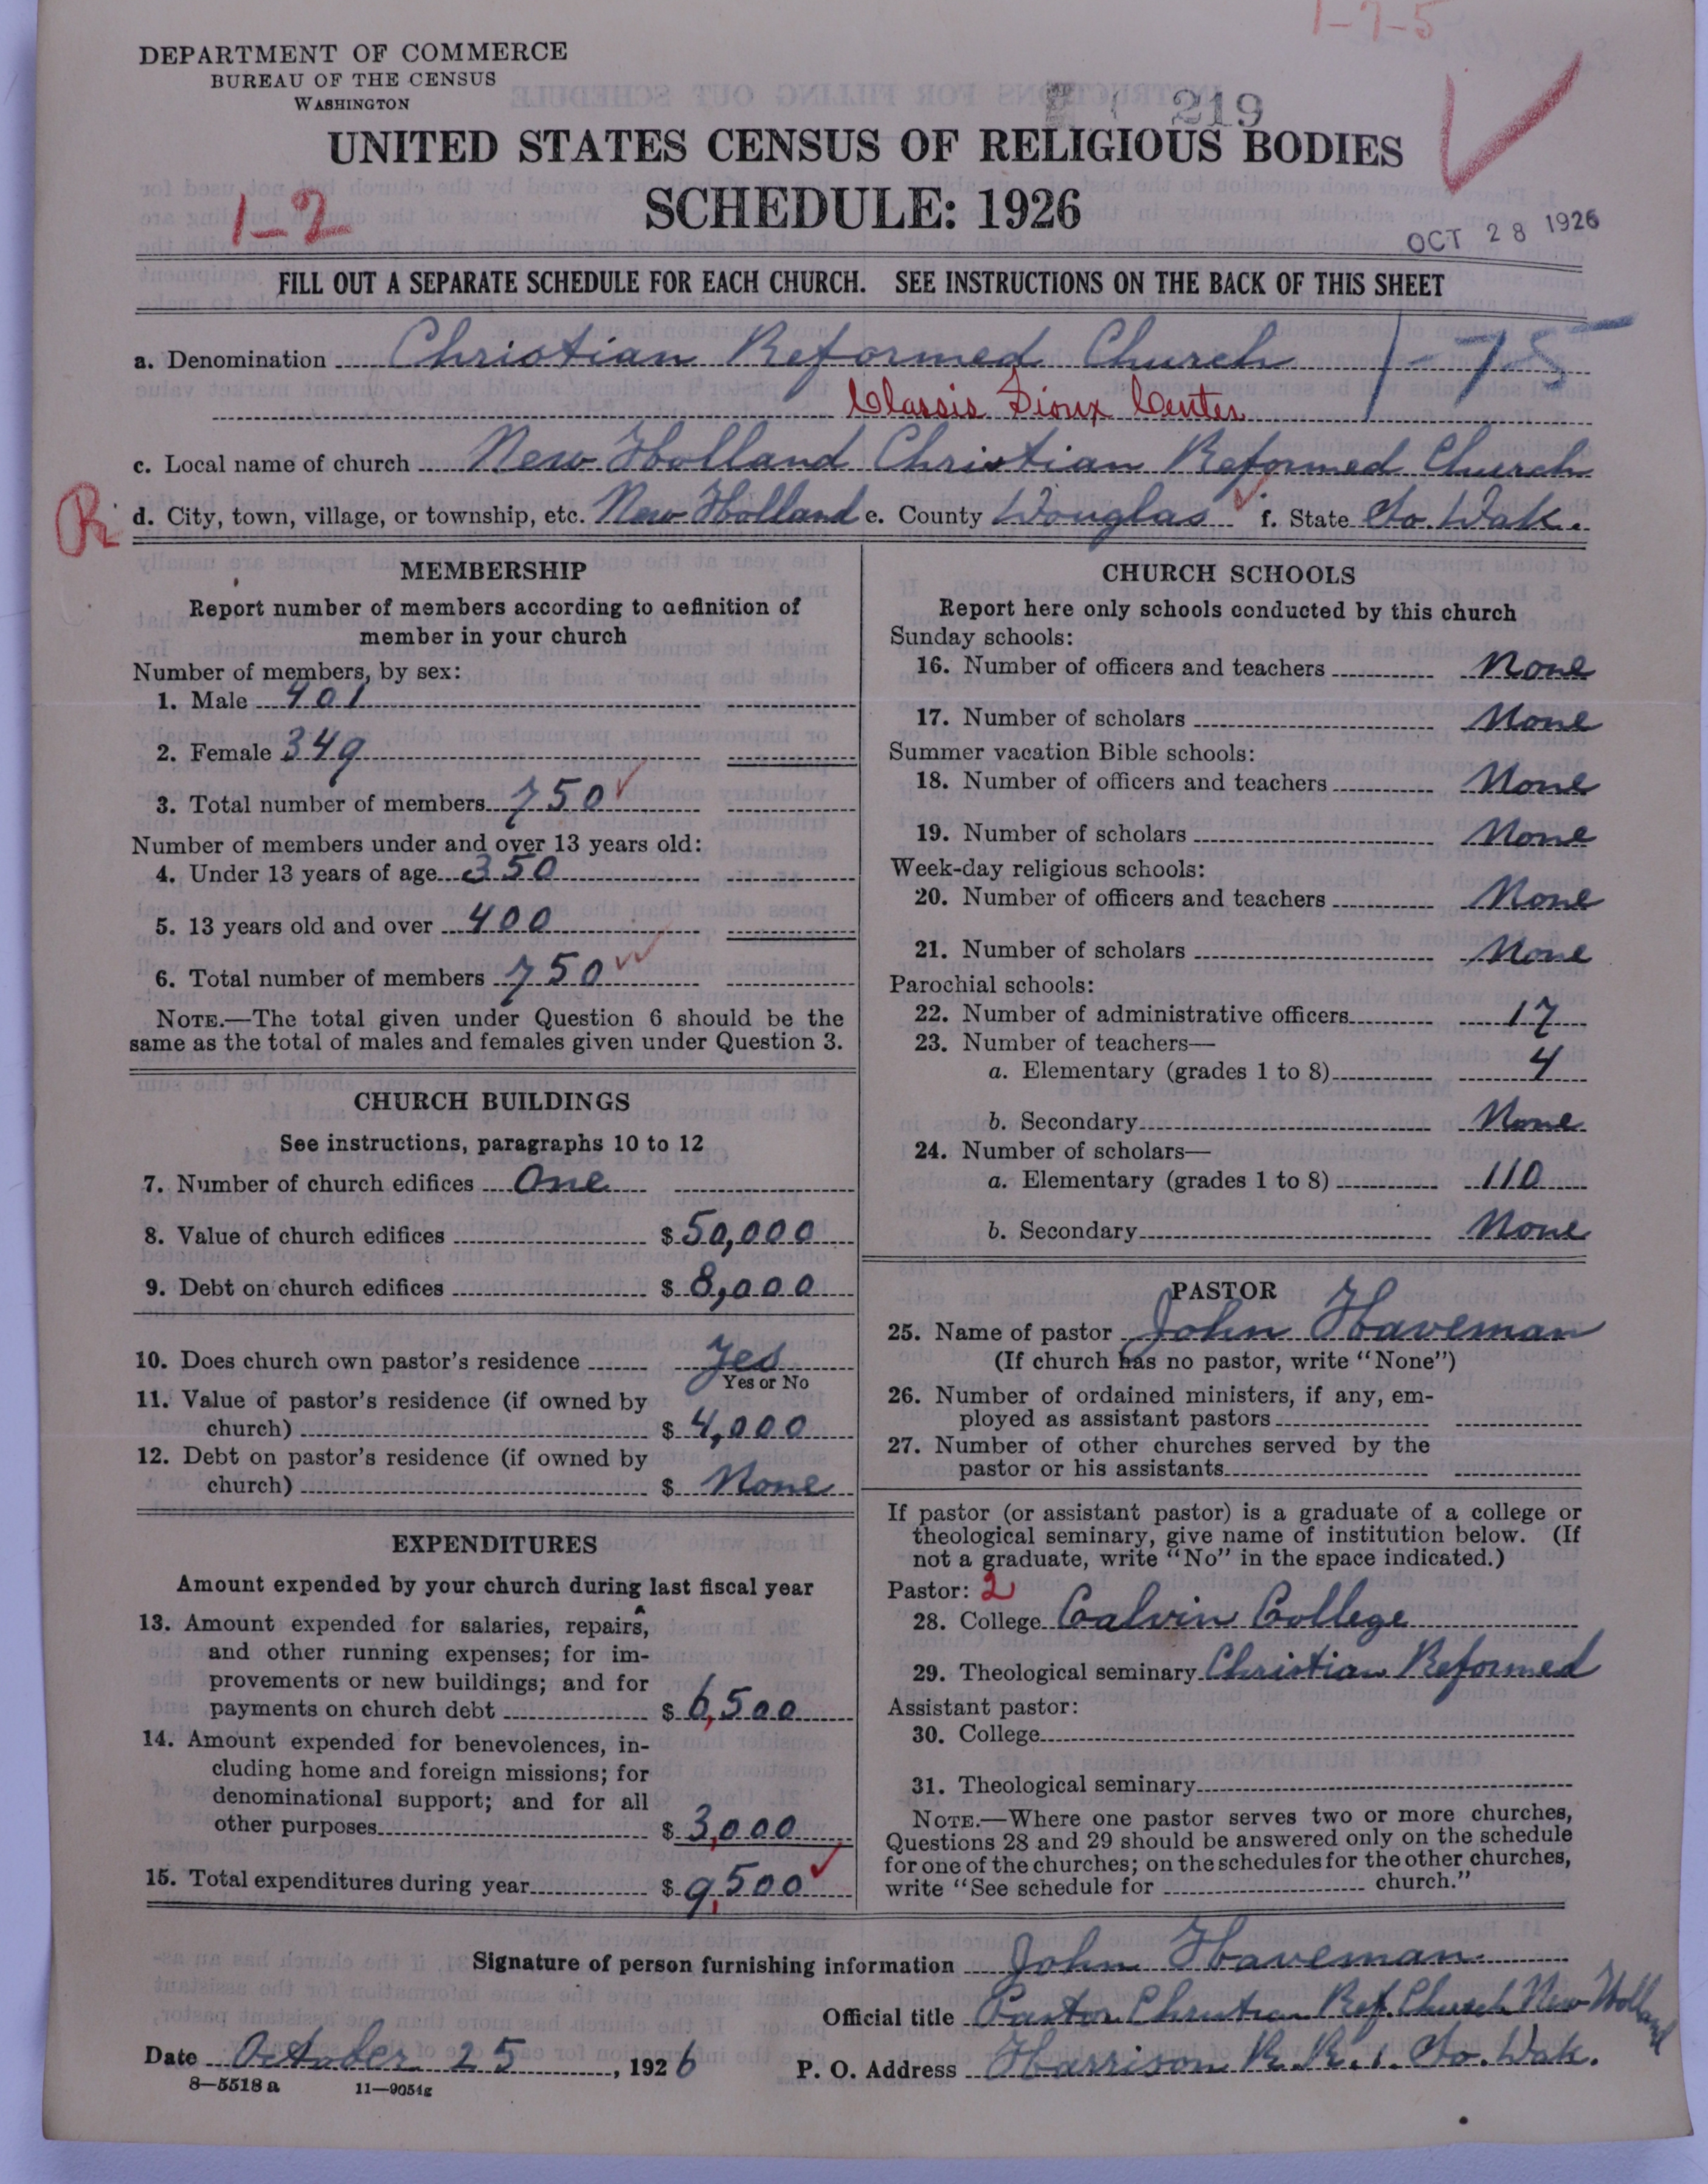 1-7-5
DEPARTMENT OF COMMERCE
BUREAU OF THE CENSUS
WASHINGTON
219
UNITED STATES CENSUS OF RELIGIOUS BODIES
SCHEDULE: 1926
1-2
OCT 28 1926
FILL OUT A SEPARATE SCHEDULE FOR EACH CHURCH. SEE INSTRUCTIONS ON THE BACK OF THIS SHEET
a. Denomination Christian Reformed Church 1-75
Classis Sioux Center
c. Local name of church New Holland Christian Reformed Church
R d. City, town, village, or township, etc. New Holland e. County Douglas f. State So. Dak.
MEMBERSHIP
Report number of members according to definition of
member in your church
Number of members, by sex:
1. Male 401
2. Female 349
3. Total number of members 750
Number of members under and over 13 years old:
4. Under 13 years of age 350
5. 13 years old and over 400
6. Total number of members 750
NOTE.—The total given under Question 6 should be the
same as the total of males and females given under Question 3.
CHURCH BUILDINGS
See instructions, paragraphs 10 to 12
7. Number of church edifices One
8. Value of church edifices $ 50,000
9. Debt on church edifices $ 8,000
10. Does church own pastor's residence Yes
Yes or No
11. Value of pastor's residence (if owned by
church) $ 4,000
12. Debt on pastor's residence (if owned by
church) $ None
EXPENDITURES
Amount expended by your church during last fiscal year
13. Amount expended for salaries, repairs,
and other running expenses; for im-
provements or new buildings; and for
payments on church debt $ 6,500
14. Amount expended for benevolences, in-
cluding home and foreign missions; for
denominational support; and for all
other purposes $ 3,000
15. Total expenditures during year $ 9,500
CHURCH SCHOOLS
Report here only schools conducted by this church
Sunday schools:
16. Number of officers and teachers None
17. Number of scholars None
Summer vacation Bible schools:
18. Number of officers and teachers None
19. Number of scholars None
Week-day religious schools:
20. Number of officers and teachers None
21. Number of scholars None
Parochial schools:
22. Number of administrative officers 17
23. Number of teachers—
a. Elementary (grades 1 to 8) 4
b. Secondary None
24. Number of scholars—
a. Elementary (grades 1 to 8) 110
b. Secondary None
PASTOR
25. Name of pastor John Haveman
(If church has no pastor, write "None")
26. Number of ordained ministers, if any, em-
ployed as assistant pastors
27. Number of other churches served by the
pastor or his assistants
If pastor (or assistant pastor) is a graduate of a college or
theological seminary, give name of institution below. (If
not a graduate, write "No" in the space indicated.)
Pastor: 2
28. College Calvin College
29. Theological seminary Christian Reformed
Assistant pastor:
30. College
31. Theological seminary
NOTE.—Where one pastor serves two or more churches,
Questions 28 and 29 should be answered only on the schedule
for one of the churches; on the schedules for the other churches,
write "See schedule for church."
Signature of person furnishing information John Haveman
Official title Pastor Christian Ref. Church New Holland
Date October 25, 1926 P. O. Address Harrison R.R. 1. So. Dak.
8—5518 a 11—9054g